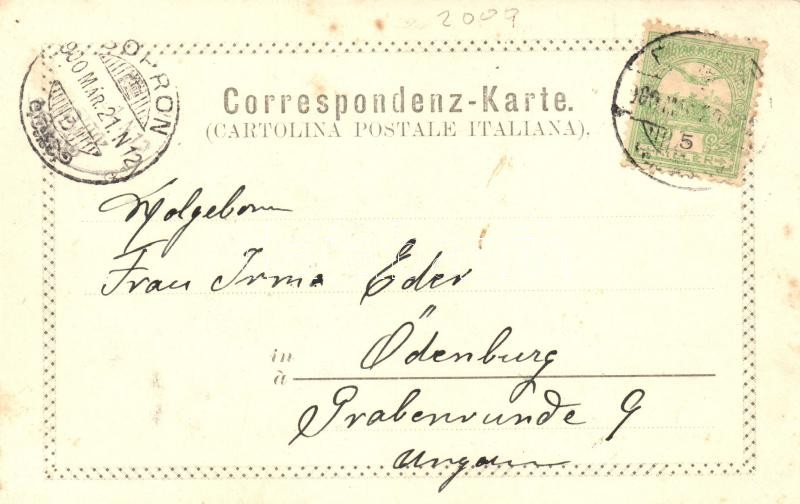 2009
SOPRON
900 MÁR. 21. N12
Correspondenz-Karte.
(CARTOLINA POSTALE ITALIANA).
MAGYAR KIR. POSTA
5
Wolgeborn
Frau Irma Eder
in Ödenburg
à
Grabenrunde 9
Ungarn